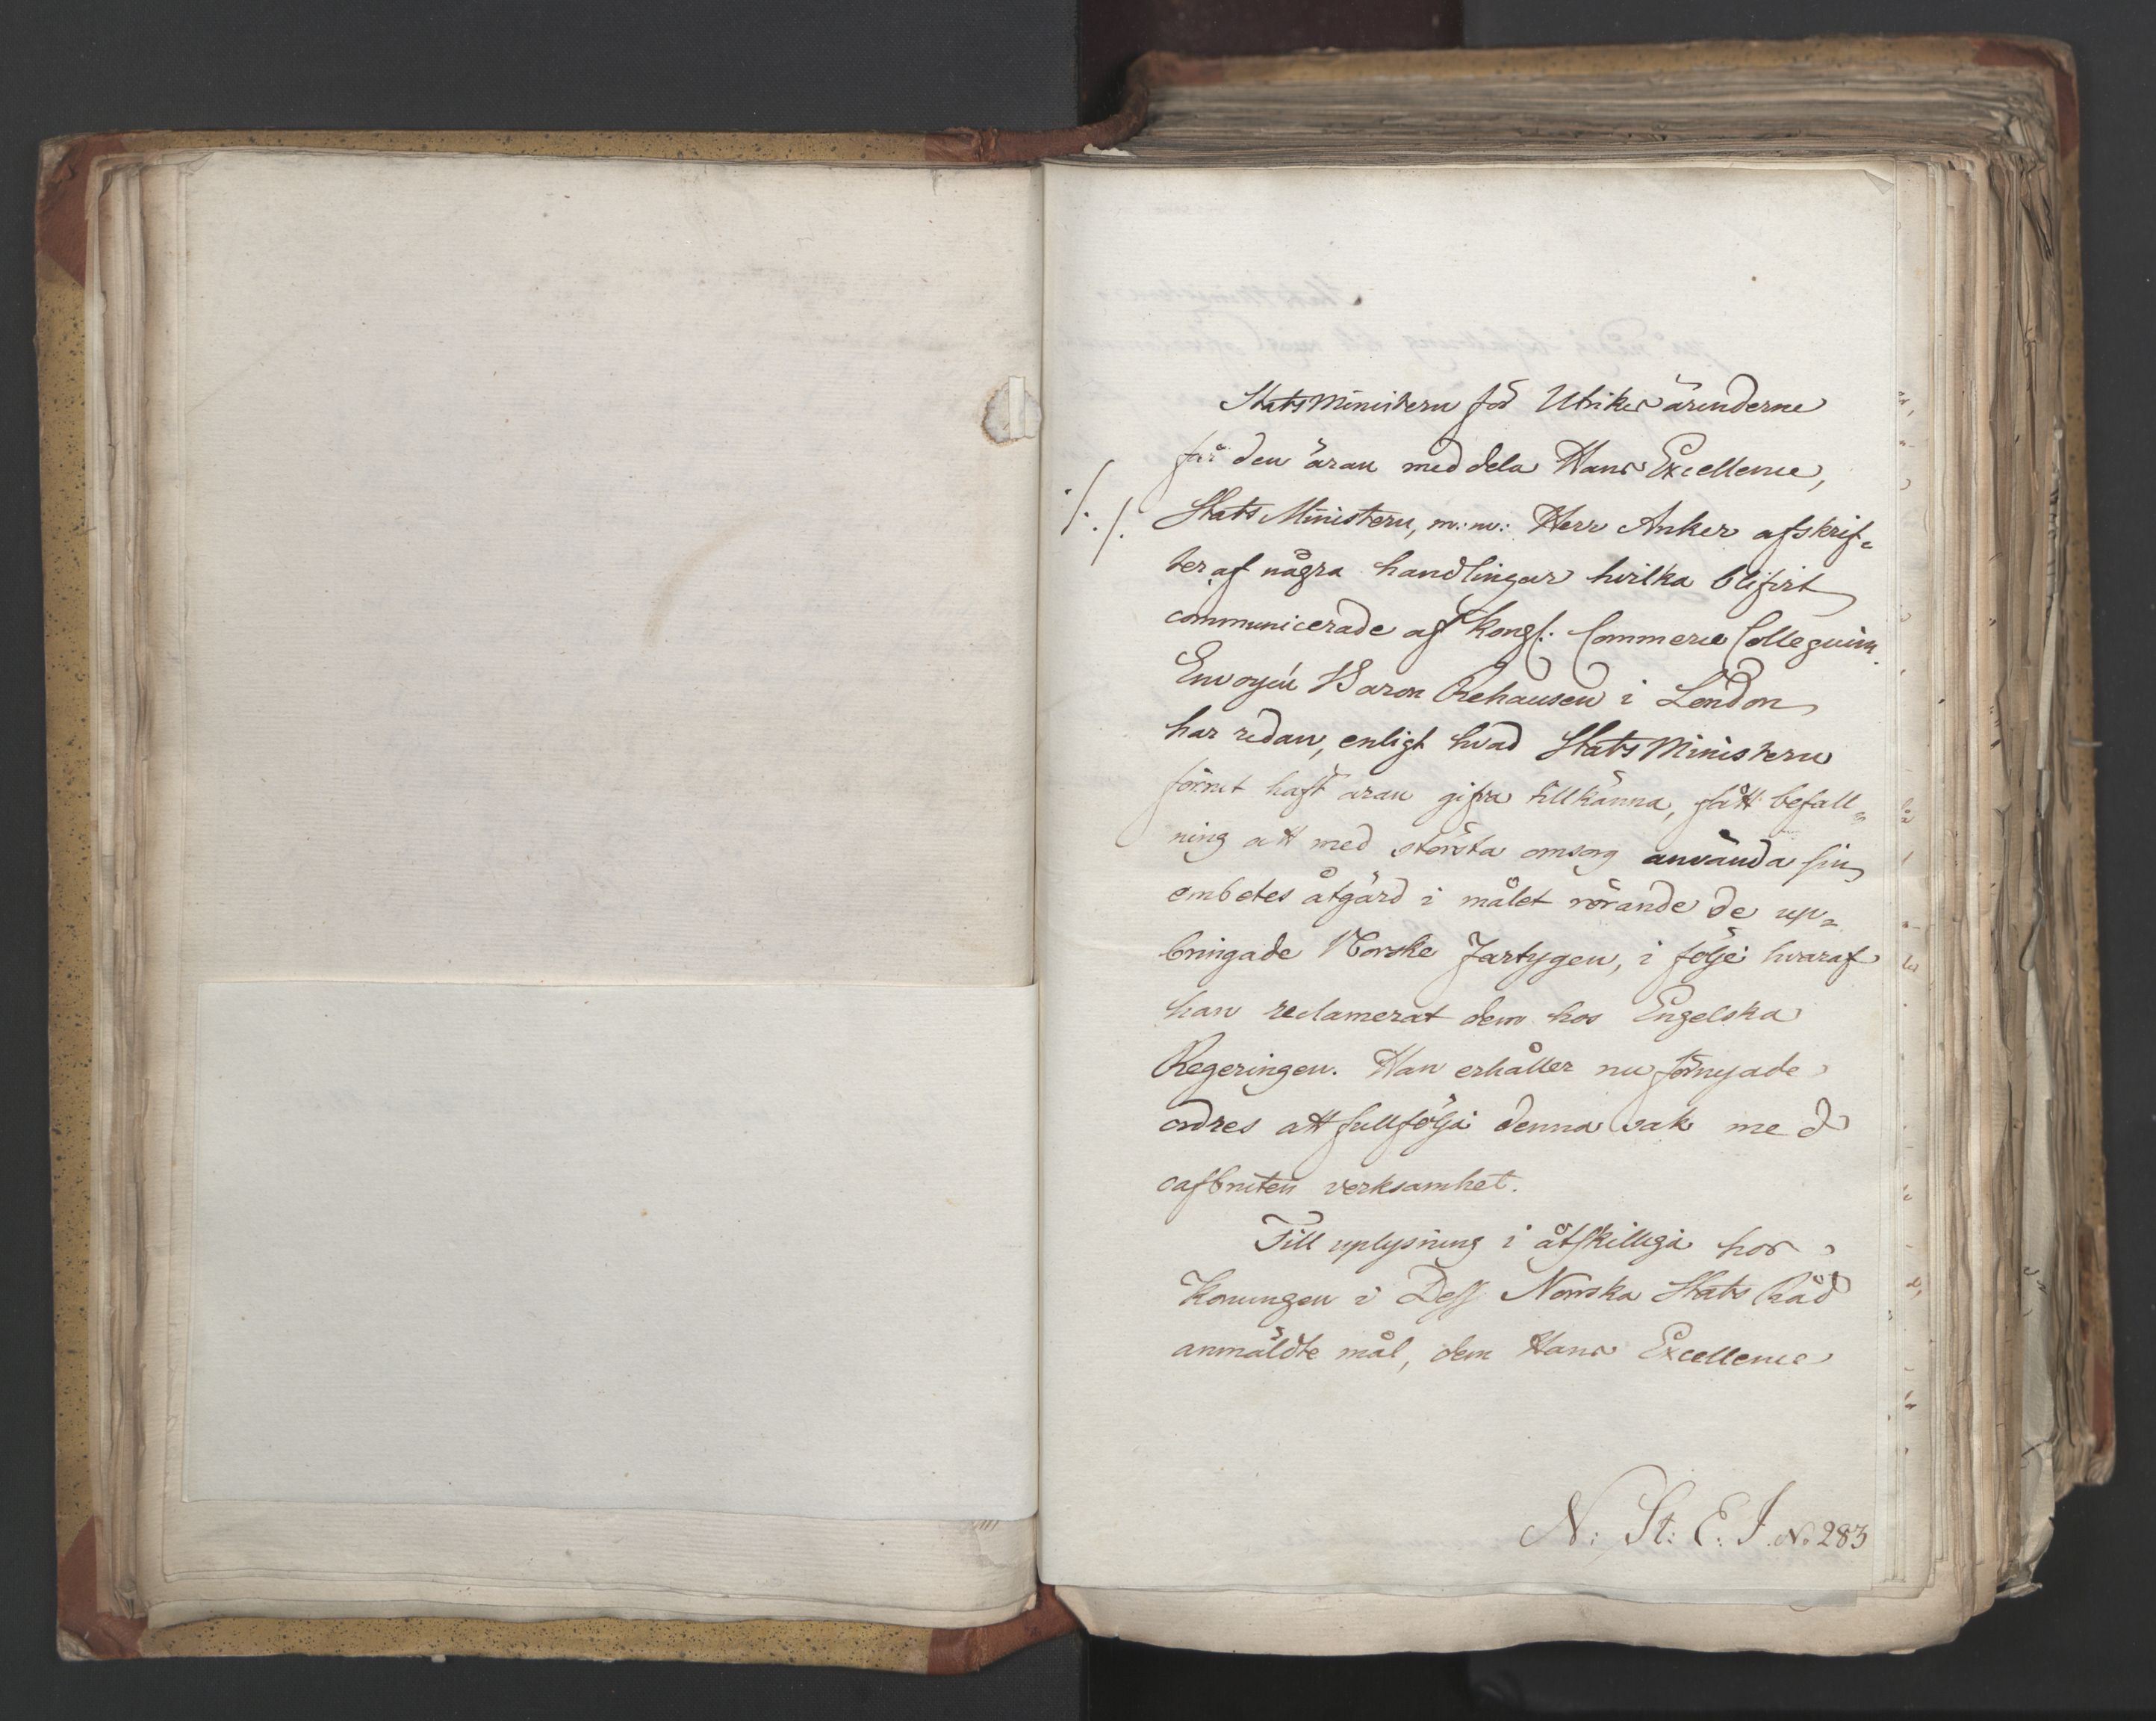 StatsMinistern för Utrikes ärenderne
får den äran meddela Hans Excellence,
./. ./. Stats Ministern, m: m: Herr Anker afskrif=
ter af några handlingar hvilka blifvit
communicerade af Kongl. Commerce Collegium.
Envoyén Baron Rehausen i London
har redan, enligt hvad StatsMinistern
förrut haft äran gifva tillkänna, fått befall=
ning att med största omsorg använda sin
embetes åtgärd i målet rörande de up=
bringade Norske Fartygen, i följe hvaraf
han reclamerat dem hos Engelska
Regeringen. Han erhåller nu förnyade
ordres att fullfölja denna sak med
oafbruten verksamhet.
Till uplysning i åtskilliga hos
Konungen i Dess Norrska Stats Råd
anmäldte mål, dem Hans Excellence
N: St: E: J. No 283